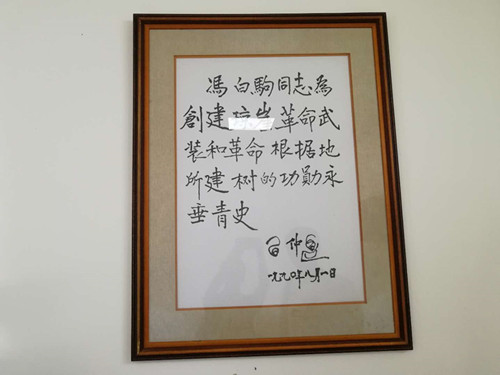 馮白駒同志為
創建琼崖革命武
装和革命根据地
所建树的功勛永
垂青史
習仲勛
一九九〇年八月一日